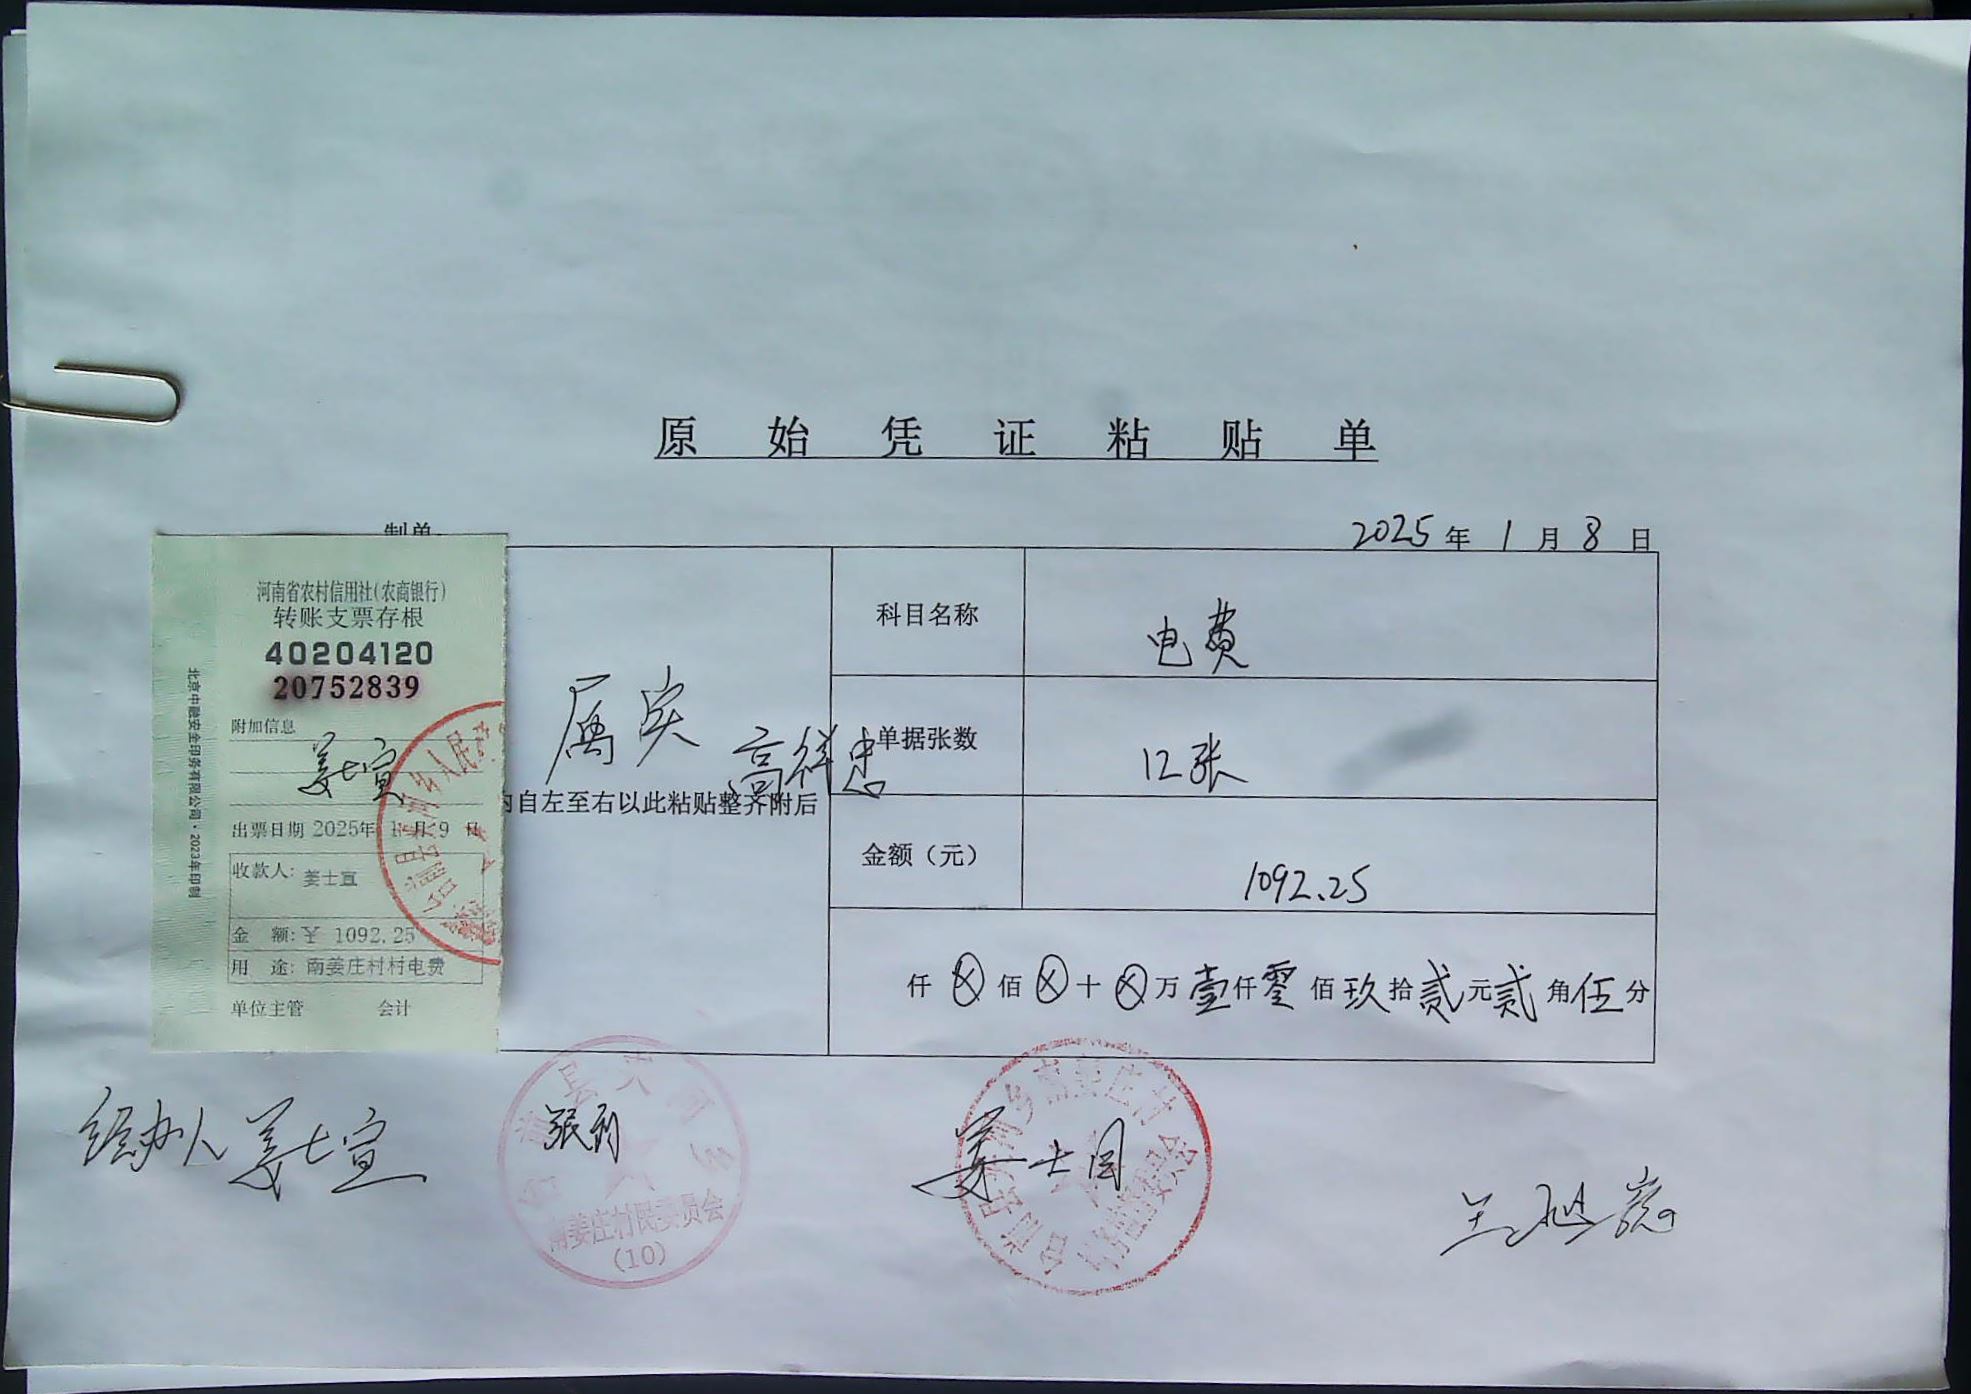 原始凭证粘贴单
制单:
2025年1月8日
河南省农村信用社(农商银行)
转账支票存根
40204120
20752839
附加信息
姜士宣
出票日期 2025年 1月 9 日
收款人: 姜士宣
金 额: ¥ 1092.25
用 途: 南姜庄村村电费
单位主管 会计
北京中融安全印务有限公司·2023年印制
属实
高祥忠
内自左至右以此粘贴整齐附后
科目名称 电费
单据张数 12张
金额（元） 1092.25
仟ⓧ佰ⓧ十ⓧ万壹仟零佰玖拾贰元贰角伍分
经办人 姜士宣
南姜庄村民委员会
(10)